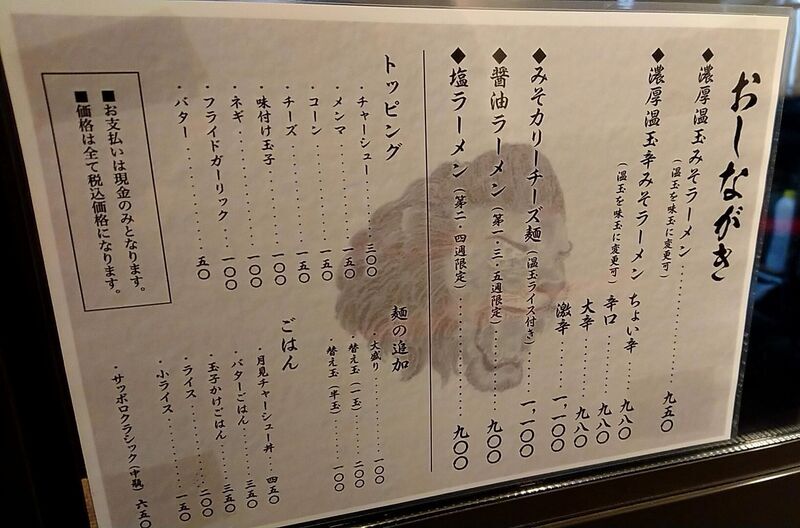 おしながき
◆濃厚温玉みそラーメン……………九五〇
(温玉を味玉に変更可)
◆濃厚温玉辛みそラーメン ちょい辛……九八〇
(温玉を味玉に変更可)
辛口……九八〇
大辛……九八〇
激辛……一,一〇〇
◆みそカリーチーズ麺(温玉ライス付き)……一,一〇〇
◆醤油ラーメン(第一・三・五週限定)……九〇〇
◆塩ラーメン(第二・四週限定)……九〇〇
トッピング
・チャーシュー……三〇〇
・メンマ……一五〇
・コーン……一五〇
・チーズ……一〇〇
・味付け玉子……一〇〇
・ネギ……一〇〇
・フライドガーリック……一〇〇
・バター……五〇
麺の追加
・大盛り……一〇〇
・替え玉(一玉)……二〇〇
・替え玉(半玉)……一〇〇
ごはん
・月見チャーシュー丼……四五〇
・バターごはん……三五〇
・玉子かけごはん……三五〇
・ライス……二〇〇
・小ライス……一五〇
・サッポロクラシック(中瓶)六五〇
■お支払いは現金のみとなります。
■価格は全て税込価格になります。